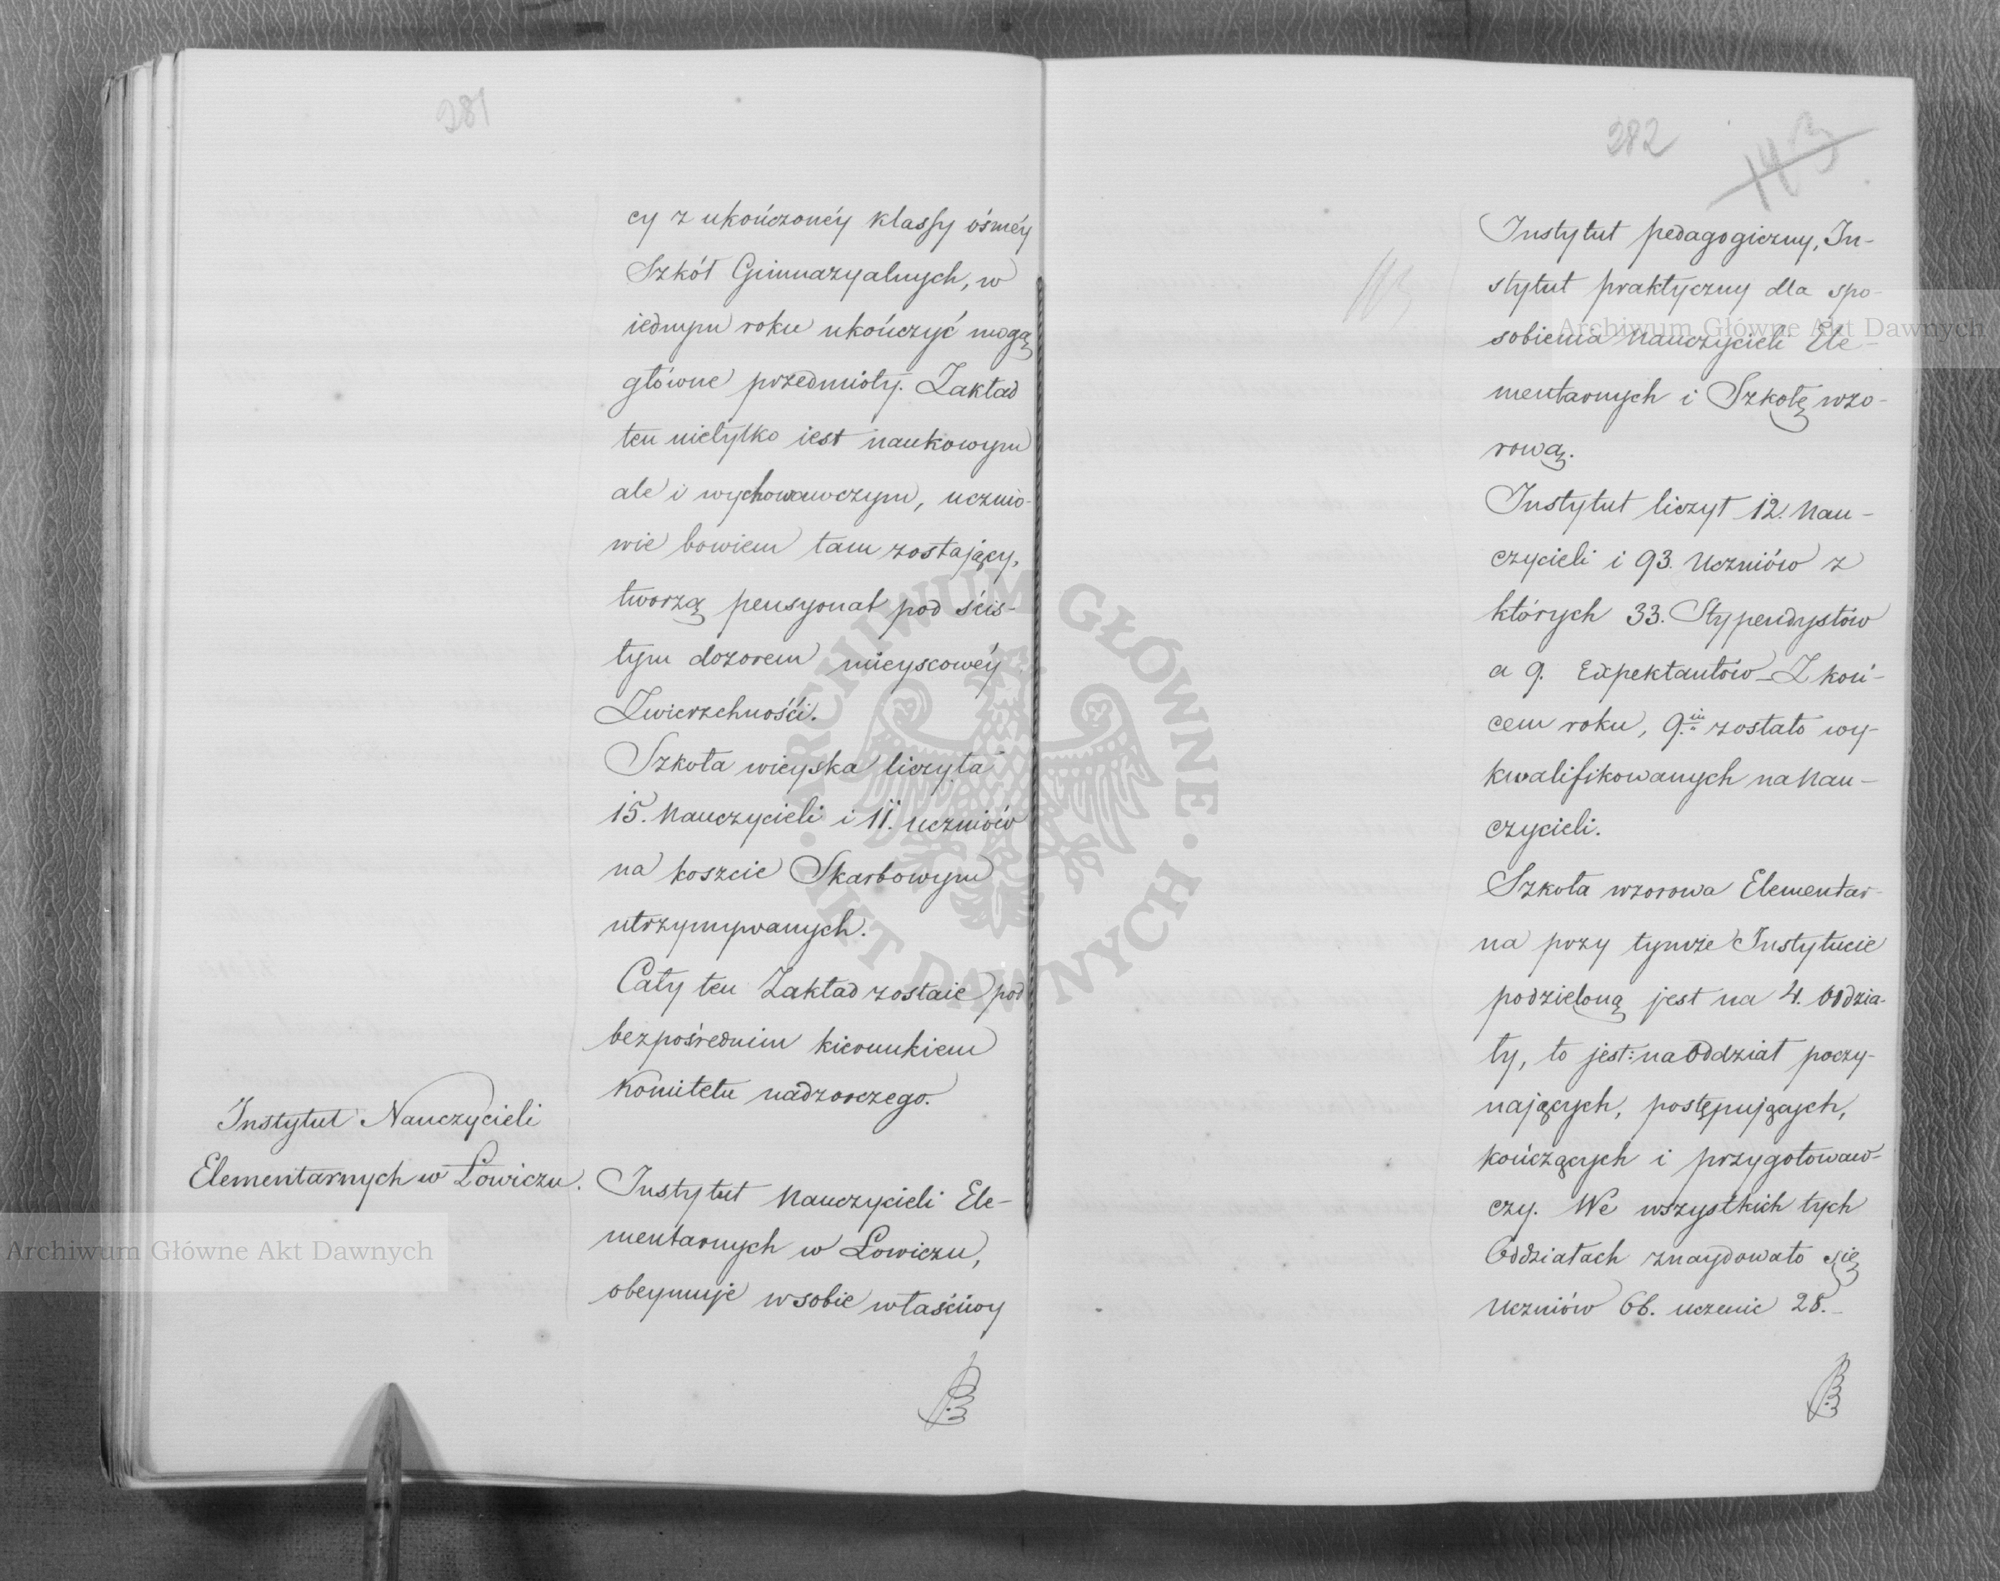 281
cy z ukończonéy klassy ósméy
Szkół Gimnazyalnych, w
iednym roku ukończyć mogą
główne przedmioty. Zakład
ten nietylko iest naukowym
ale i wychowawczym, ucznio-
wie bowiem tam zostający,
tworzą pensyonat pod ścis-
łym dozorem mieyscowéy
Zwierzchności.
Szkoła wieyska liczyła
15. Nauczycieli i 11. uczniów
na koszcie Skarbowym
utrzymywanych.
Cały ten Zakład zostaie pod
bezpośrednim kierunkiem
Komitetu nadzorczego.
Instytut Nauczycieli
Elementarnych w Łowiczu.
Instytut Nauczycieli Ele-
mentarnych w Łowiczu,
obeymuje w sobie właściwy
282
143
Instytut pedagogiczny, In-
stytut praktyczny dla spo-
sobienia Nauczycieli Ele-
mentarnych i Szkołę wzo-
rową.
Instytut liczył 12. Nau-
czycieli i 93. Uczniów z
których 33. Stypendystów
a 9. Expektantów – Z koń-
cem roku, 9.iu zostało wy-
kwalifikowanych na Nau-
czycieli.
Szkoła wzorowa Elementar-
na przy tymże Instytucie
podzieloną jest na 4. Oddzia-
ły, to jest: na Oddział poczy-
nających, postępujących,
kończących i przygotowaw-
czy. We wszystkich tych
Oddziałach znaydowało się
Uczniów 66. uczenic 28. –
Archiwum Główne Akt Dawnych
Archiwum Główne Akt Dawnych
ARCHIWUM GŁÓWNE · AKT DAWNYCH ·